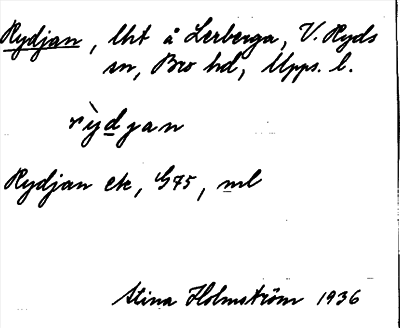 Rydjan, lht å Lerberga, V. Ryds
sn, Bro hd, Upps. l.
rỳdjan
Rydjan etc, G75, ml
Stina Holmström 1936